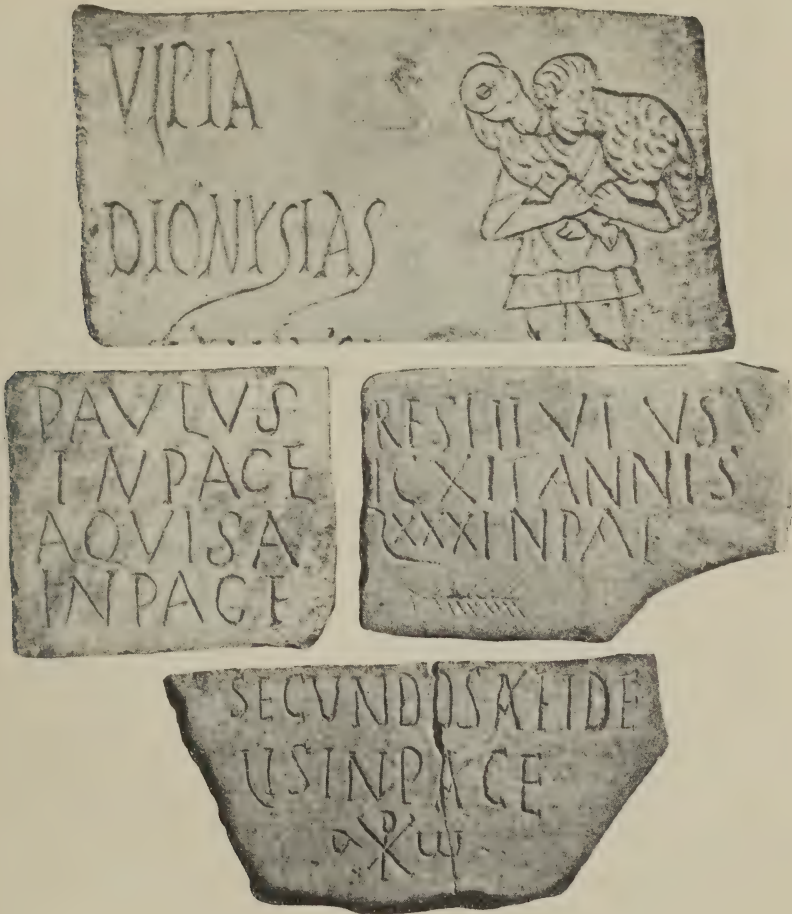 VLPIA
DIONYSIAS
PAVLVS
INPACE
AQVISA
INPACE
RESTITVTVSV
ICXITANNIS
LXXXINPAE
SECUNDOS
USINPACE
α ☧ ω